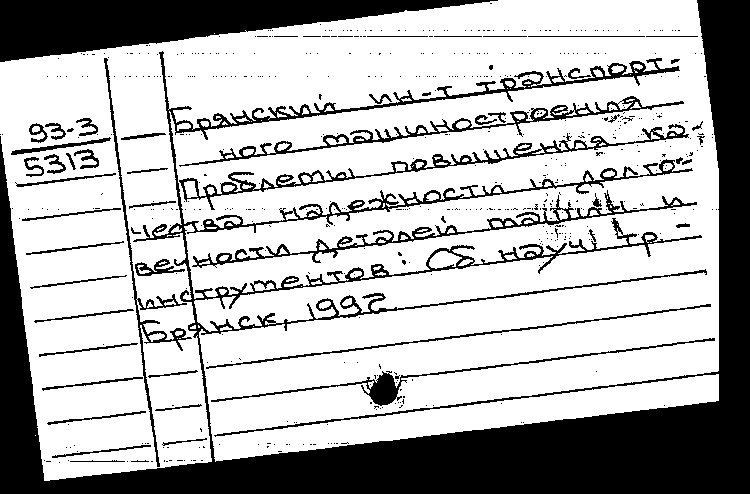 93-3
5313
Брянский ин-т транспорт-
ного машиностроения
Проблемы повышения ка-
чества, надежности и долго-
вечности деталей машин и
инструментов: Сб. науч. тр. -
Брянск, 1992